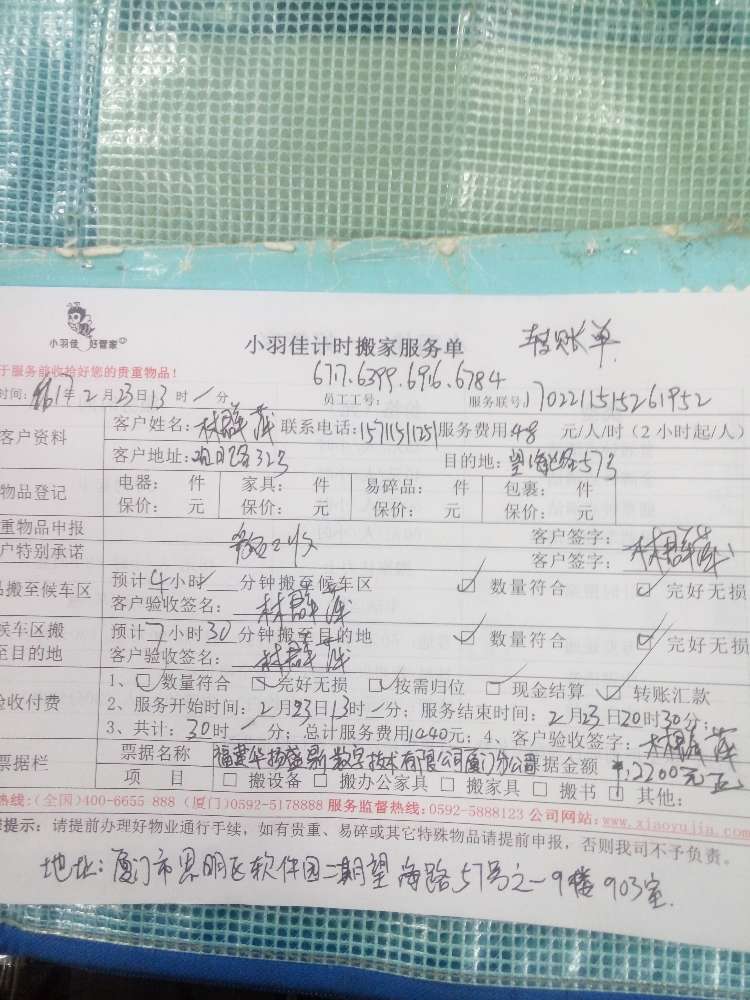 小羽佳 好管家
小羽佳计时搬家服务单 转账单
于服务前收拾好您的贵重物品！
6717.6399.6916.6784
时间: 2月23日13时/分 员工工号: 服务联号: 1702211515261952
客户资料 客户姓名: 林群萍 联系电话: 15711511251 服务费用48 元/人/时（2小时起/人）
客户地址: 323 目的地: 望海路57号
物品登记 电器: 件 家具: 件 易碎品: 件 包裹: 件
保价: 元 保价: 元 保价: 元 保价: 元
重物品申报 客户签字: 林群萍
户特别承诺 客户签字:
搬至候车区 预计4小时/分钟搬至候车区 ☑ 数量符合 ☑ 完好无损
客户验收签名: 林群萍
候车区搬 预计7小时30分钟搬至目的地 ☑ 数量符合 ☑ 完好无损
至目的地 客户验收签名: 林群萍
验收付费 1、☑数量符合 ☑完好无损 ☐按需归位 ☐现金结算 ☑转账汇款
2、服务开始时间: 2月23日13时/分; 服务结束时间: 2月23日20时30分;
3、共计: 30时/分; 总计服务费用1440元; 4、客户验收签字: 林群萍
票据栏 票据名称 福建华扬盛鼎数字技术有限公司厦门分公司 票据金额 ¥2200元正
项 目 ☐ 搬设备 ☐ 搬办公家具 ☐ 搬家具 ☐ 搬书 ☐ 其他:
热线: (全国)400-6655 888 (厦门)0592-5178888 服务监督热线: 0592-5888123 公司网站: www.xiaoyujia.com
提示: 请提前办理好物业通行手续，如有贵重、易碎或其它特殊物品请提前申报，否则我司不予负责。
地址: 厦门市思明区软件园二期望海路57号之一9楼903室.